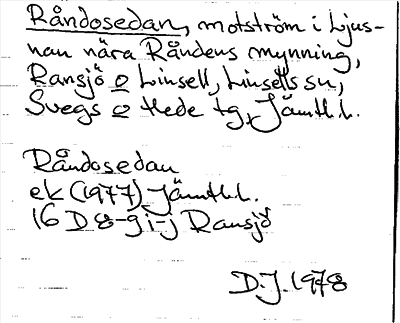 Råndosedan, motström i Ljus-
nan nära Råndens mynning,
Ransjö o Linsell, Linsells sn,
Svegs o Hede tg, Jämtl.l.
Råndosedan
ek (1977) Jämtl.l.
16 D 8-9 i-j Ransjö
D.J. 1978